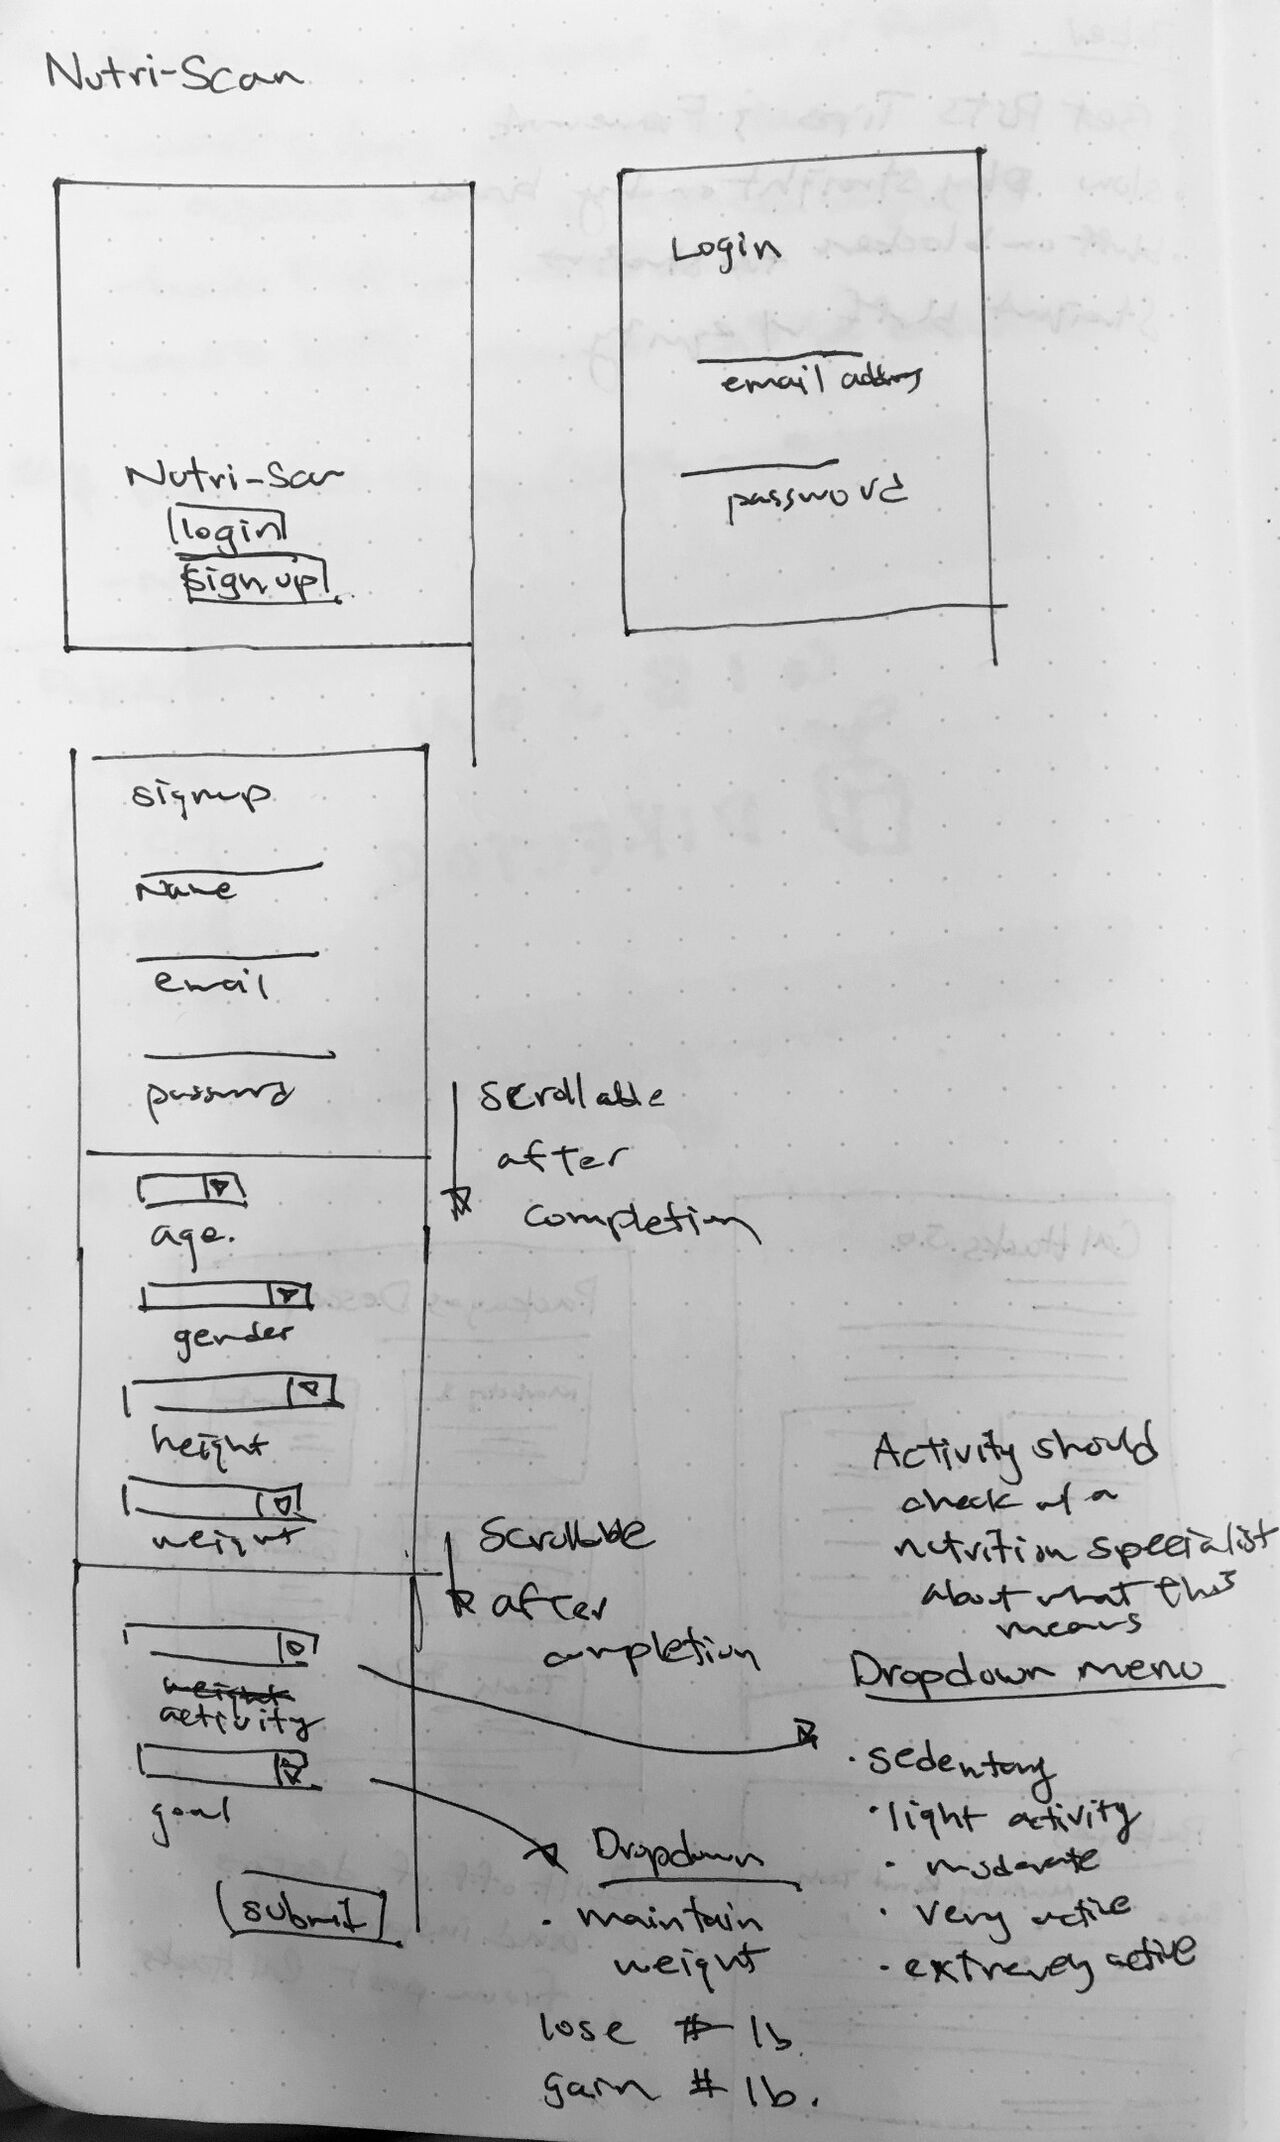 Nutri-Scan
Nutri-Scan
login
sign up
Login
email address
password
signup
Name
email
password
scrollable
after
completion
age.
gender
height
weight
scrollable
after
completion
Activity should
check w/ a
nutrition specialist
about what this
means
Dropdown menu
weight
activity
goal
submit
· sedentary
· light activity
· moderate
· very active
· extremely active
Dropdown
· maintain
weight
lose # lb
gain # lb.